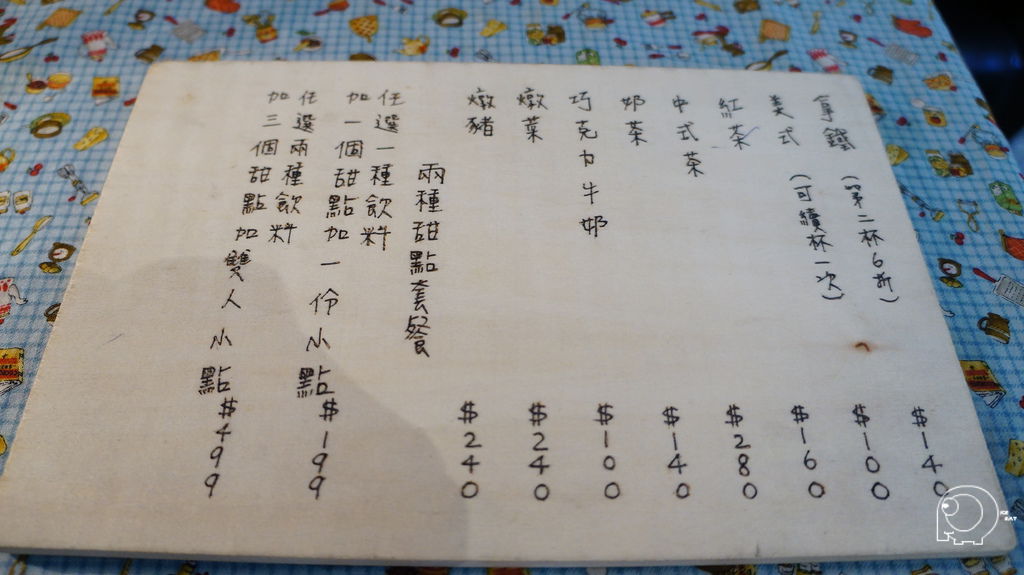 拿鐵（第二杯6折）$140
美式（可續杯一次）$100
紅茶 $160
中式茶 $280
奶茶 $140
巧克力牛奶 $100
燉葉 $240
燉豬 $240
兩種甜點套餐
任選一種飲料
加一個甜點加一份小點 $199
任選兩種飲料
加三個甜點加雙人小點 $499